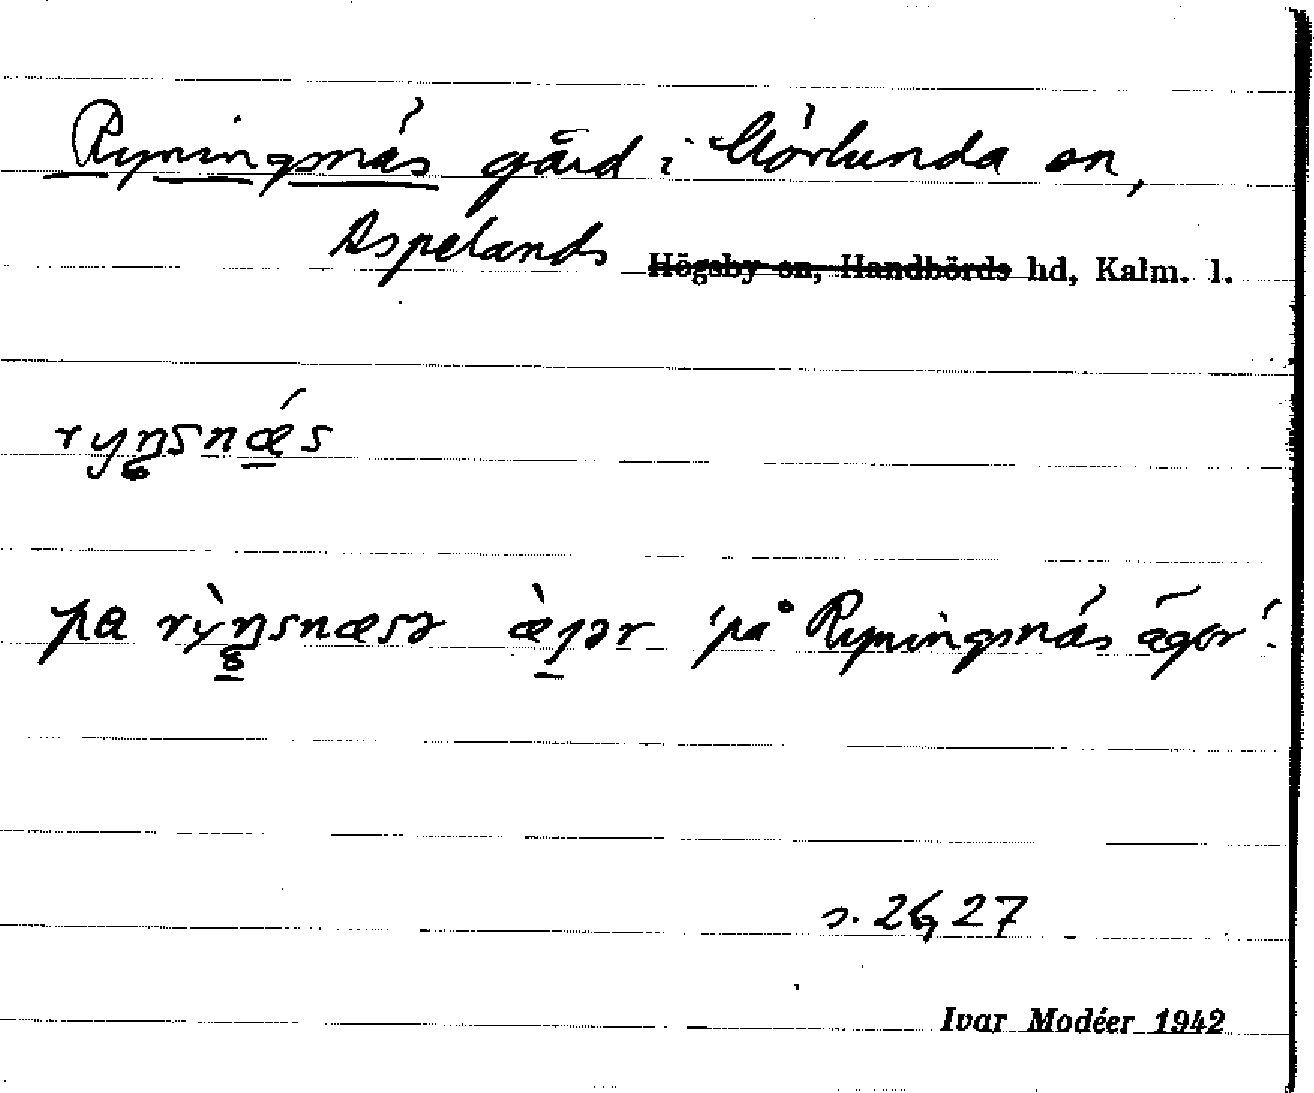 Ryningsnäs gård i Mörlunda sn,
Aspelands ~~Högsby sn, Handbörds~~ hd, Kalm. l.
ryŋsnǽs
pa rỳŋsnæsə æ̀gər 'på Ryningsnäs ägor'.
s. 26, 27
Ivar Modéer 1942